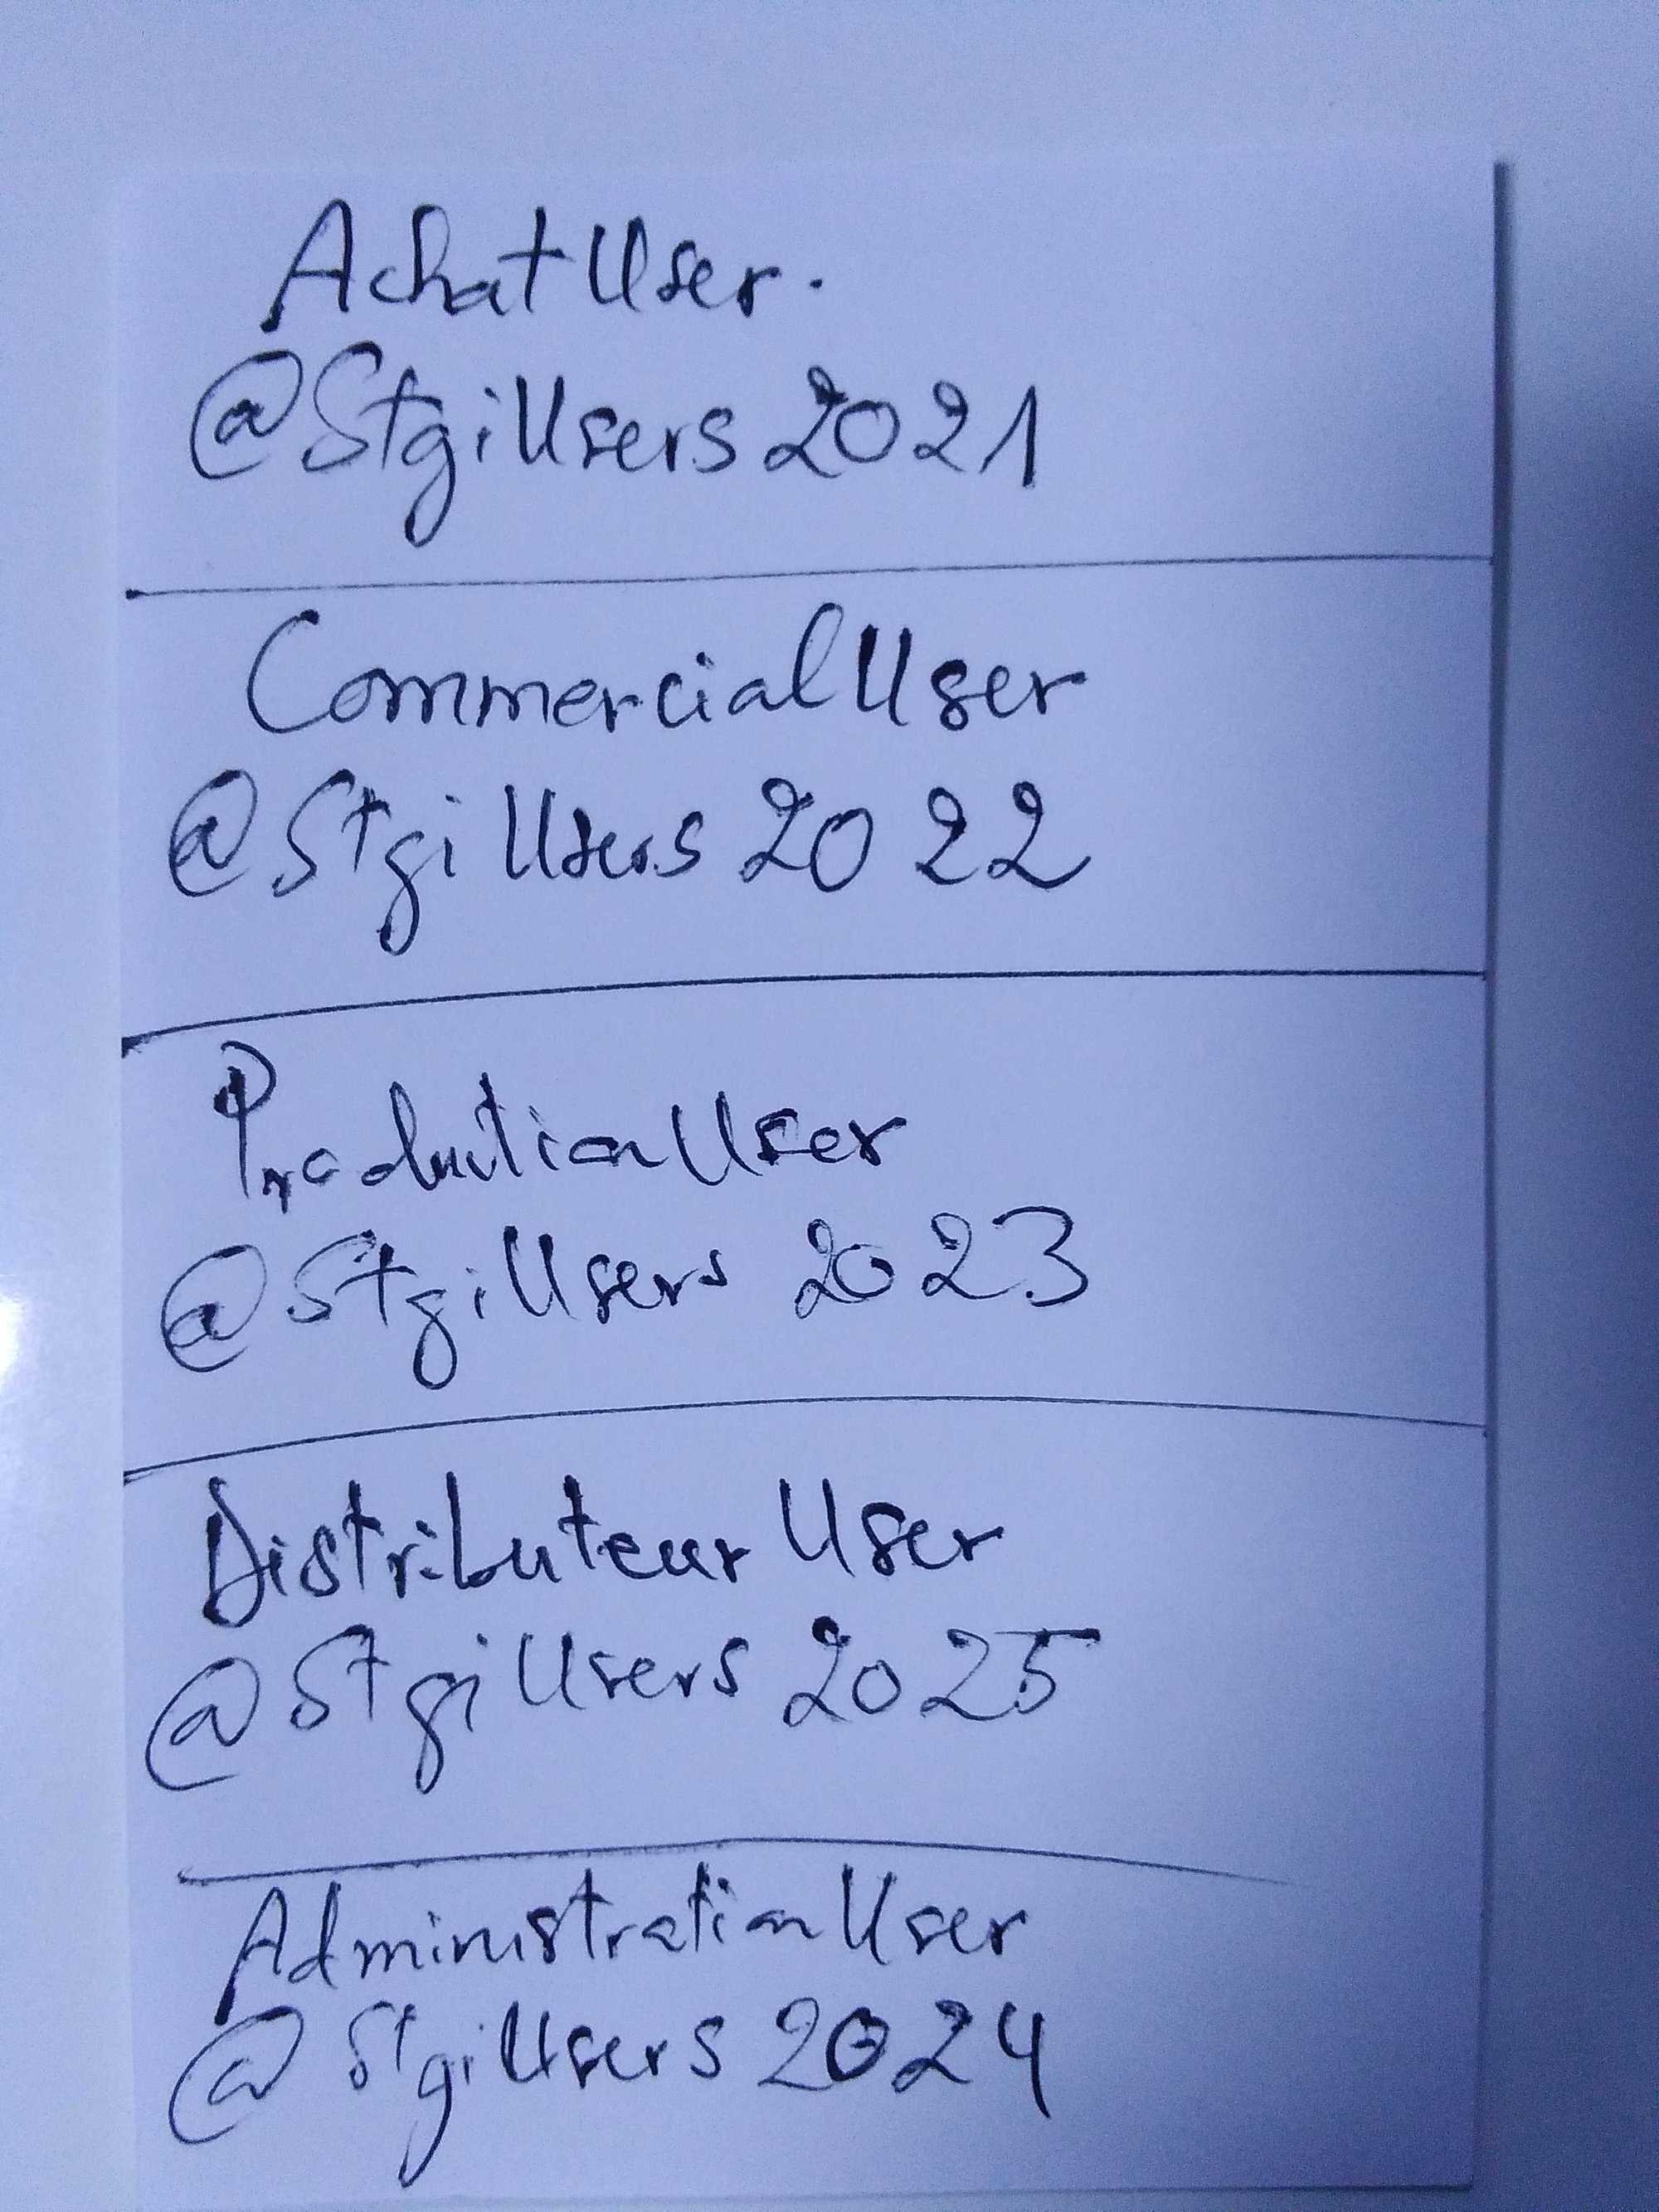 AchatUser.
@StgiUsers2021
CommercialUser
@StgiUsers2022
ProductionUser
@StgiUsers2023
DistributeurUser
@StgiUsers2025
AdministrationUser
@StgiUsers2024